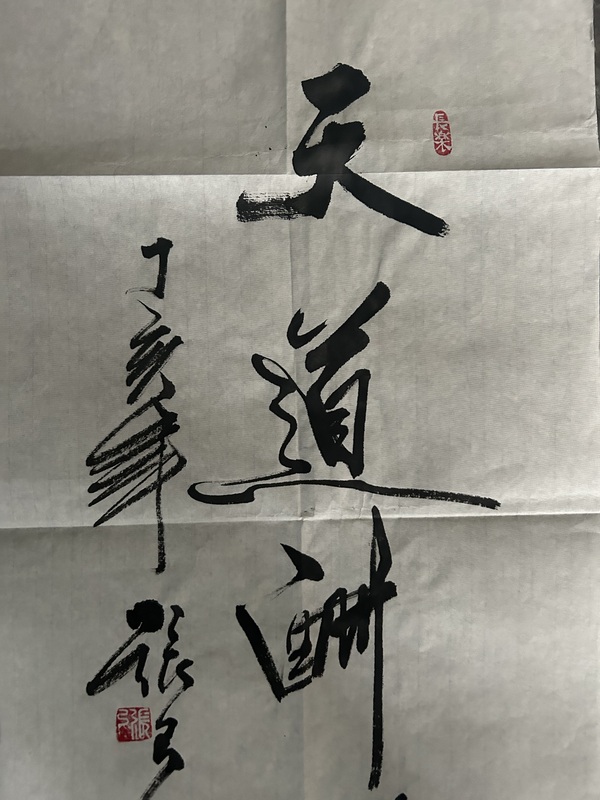 天道酬
丁亥年
張
長樂